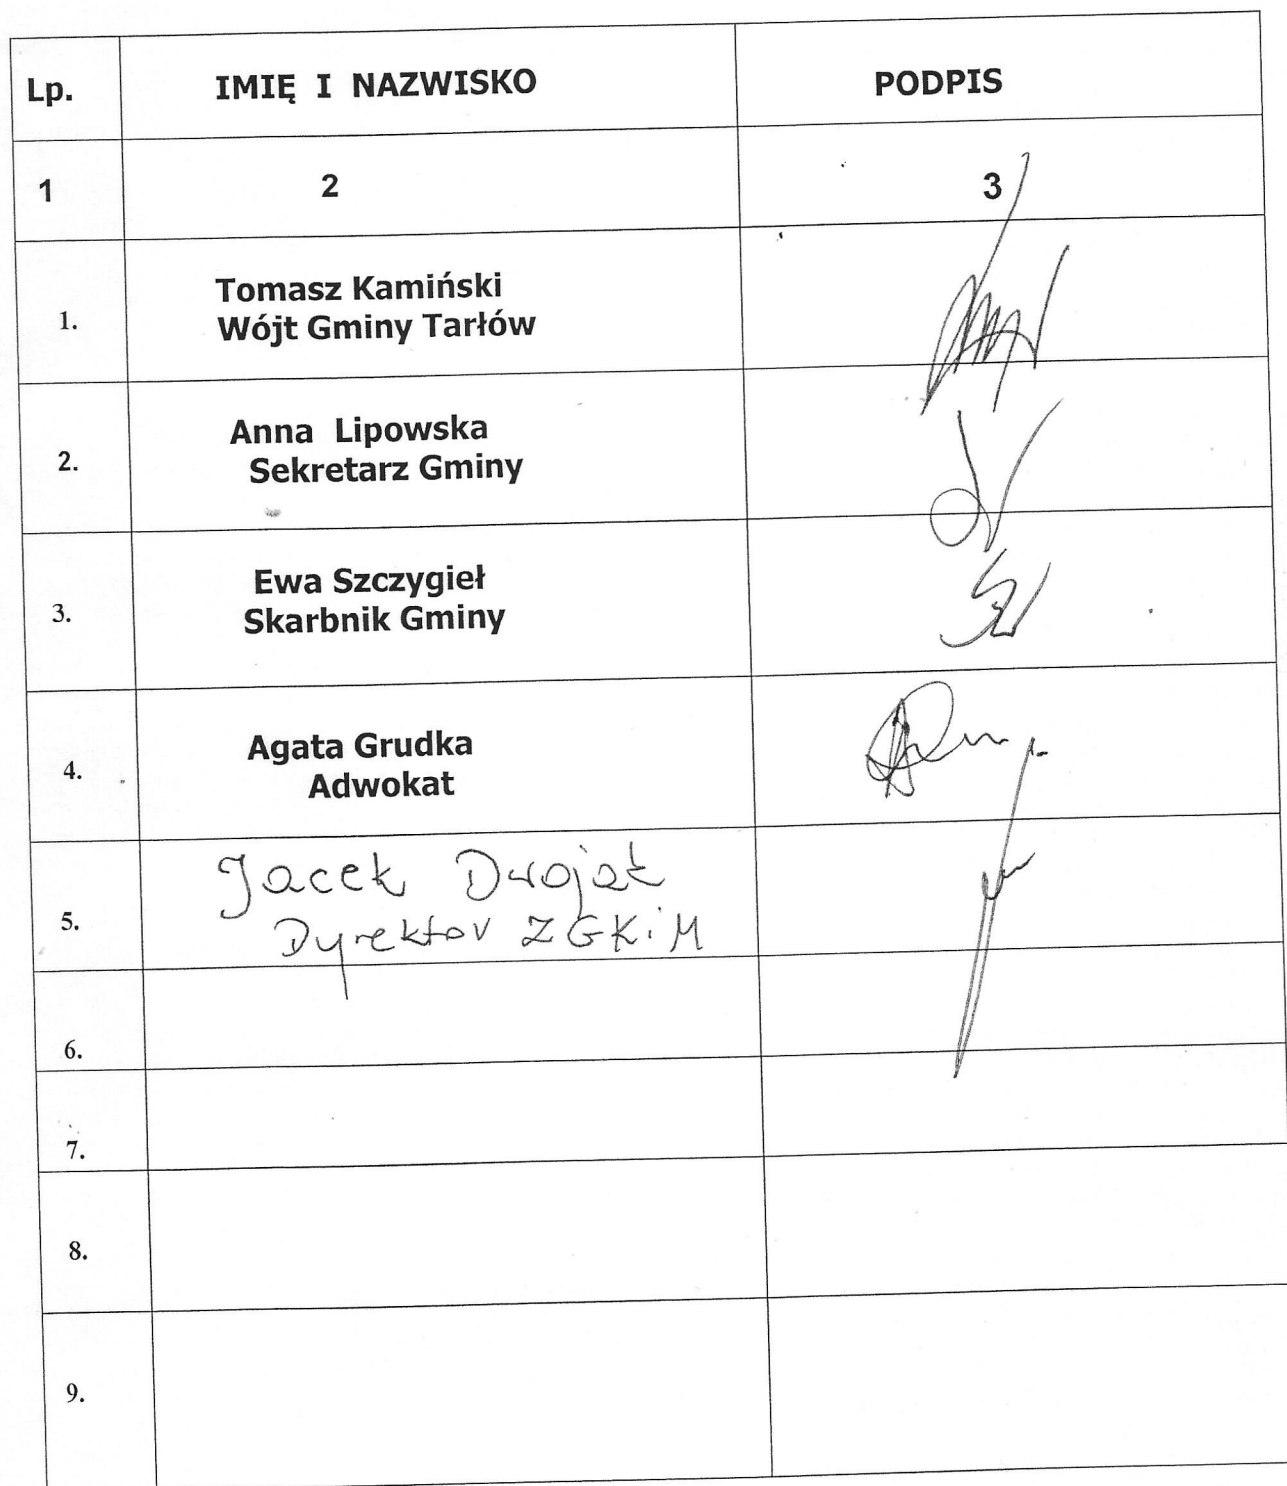 Lp. IMIĘ I NAZWISKO PODPIS
1 2 3
1. Tomasz Kamiński
Wójt Gminy Tarłów
2. Anna Lipowska
Sekretarz Gminy
3. Ewa Szczygieł
Skarbnik Gminy
4. Agata Grudka
Adwokat
5. Jacek
Dyrektor ZGKiM
6.
7.
8.
9.